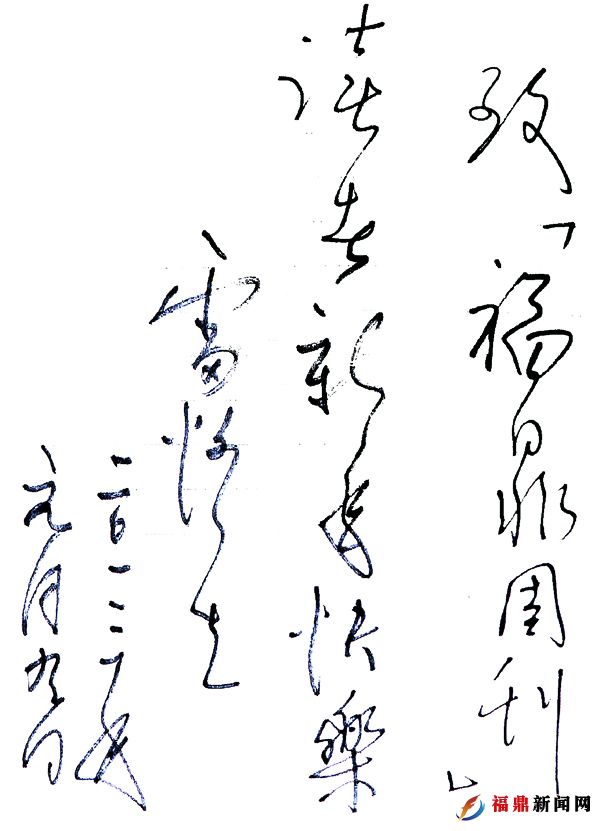 致「福鼎周刊」
讀者新年快樂
雷恪生
二〇一二年
元月九日
福鼎新闻网